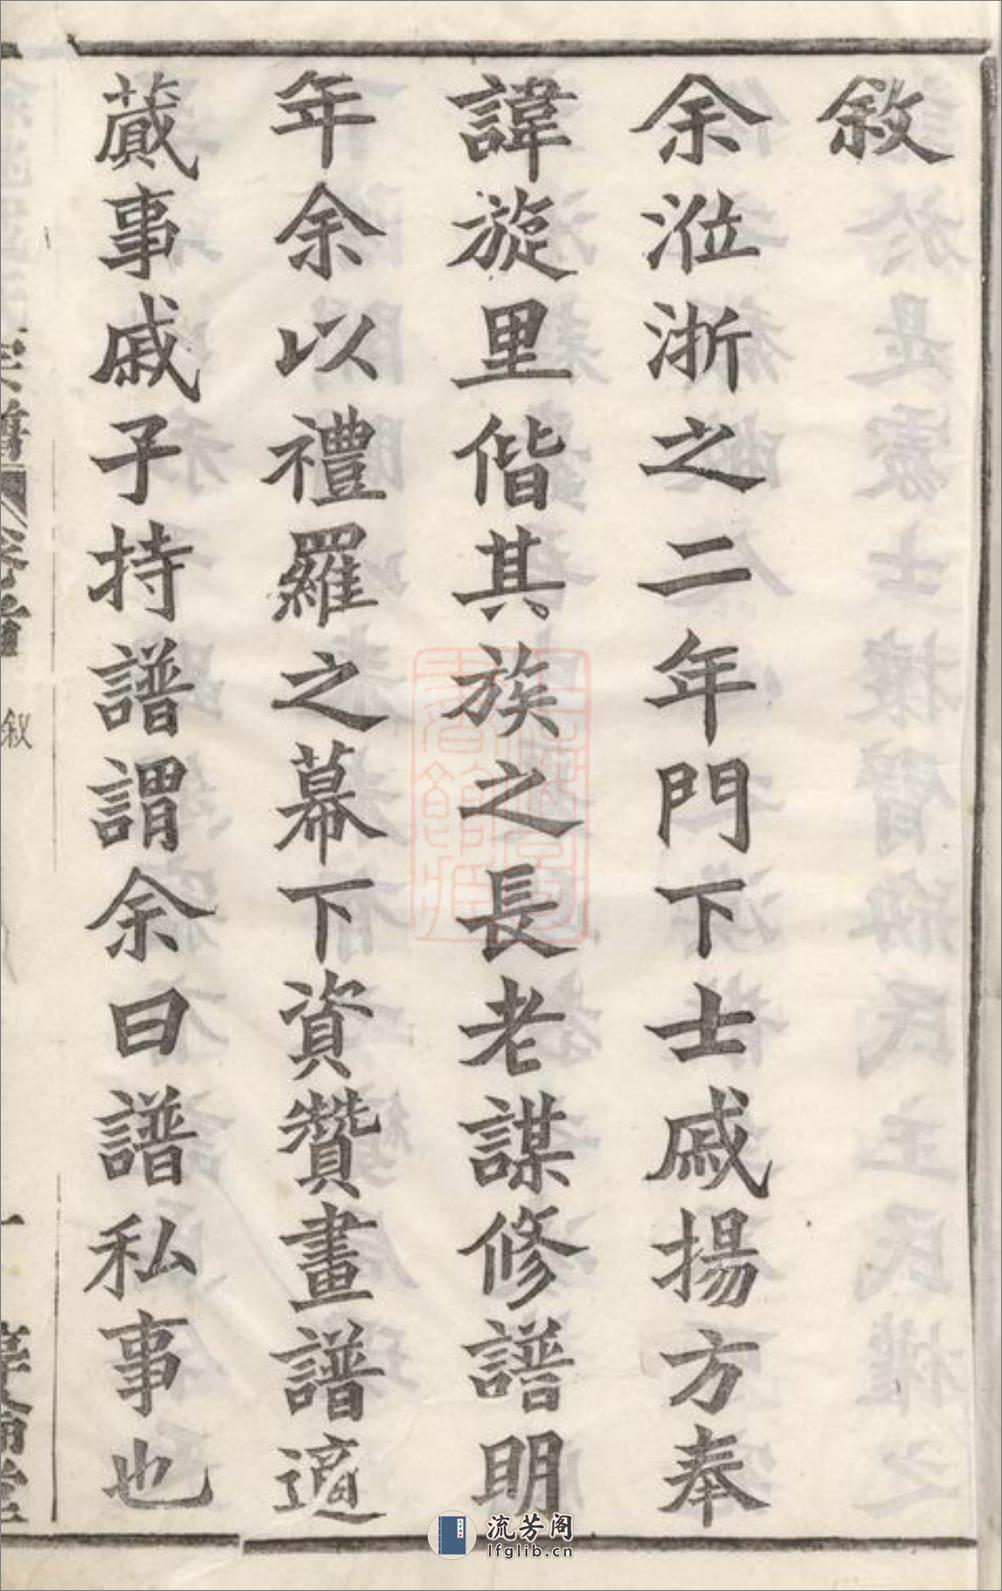 敘
余涖浙之二年門下士戚揚方奉
諱旋里偕其族之長老謀修譜明
年余以禮羅之幕下資贊畫譜適
蕆事戚子持譜謂余曰譜私事也
宗譜 卷首
敘
一
流芳阁
lfglib.cn